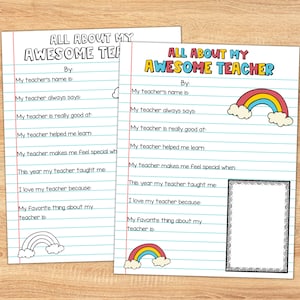 ALL ABOUT MY
AWESOME TEA
By:
My teacher's name is:
My teacher always says:
My teacher is really good at:
My teacher helped me learn:
My teacher makes me feel special when:
This year my teacher taught me:
I love my teacher because:
My Favorite thing about my
teacher is:
ALL ABOUT MY
AWESOME TEACHER
By:
My teacher's name is:
My teacher always says:
My teacher is really good at:
My teacher helped me learn:
My teacher makes me feel special when:
This year my teacher taught me:
I love my teacher because:
My Favorite thing about my
teacher is: